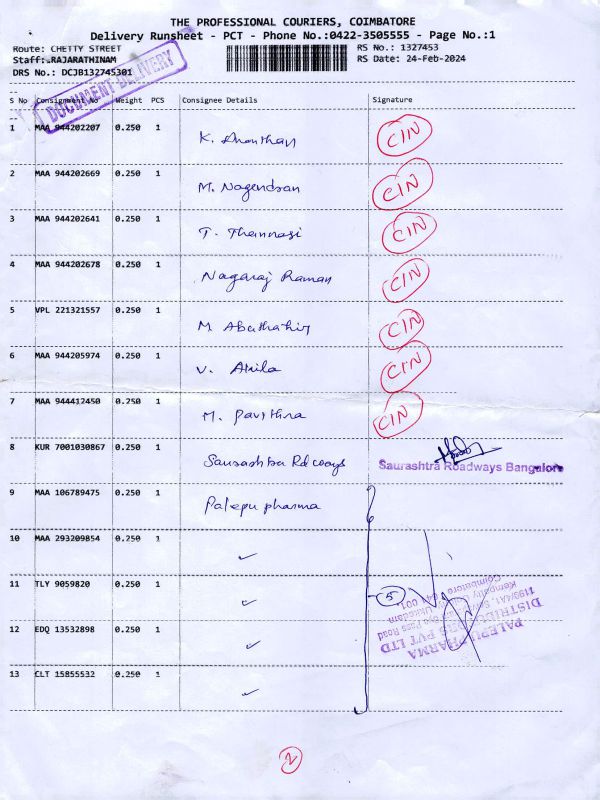 THE PROFESSIONAL COURIERS, COIMBATORE
Delivery Runsheet - PCT - Phone No.:0422-3505555 - Page No.:1
Route: CHETTY STREET RS No.: 1327453
Staff: RAJARATHINAM RS Date: 24-Feb-2024
DRS No.: DCJB132745301
DOCUMENT DELIVERY
S No Consignment No Weight PCS Consignee Details Signature
1 MAA 944202207 0.250 1 K. Ananthan CIN
2 MAA 944202669 0.250 1 M. Nagendran CIN
3 MAA 944202641 0.250 1 T. CIN
4 MAA 944202678 0.250 1 Nagaraj Raman CIN
5 VPL 221321557 0.250 1 M CIN
6 MAA 944205974 0.250 1 V. Akila CIN
7 MAA 944412450 0.250 1 M. Pavithra CIN
8 KUR 7001030867 0.250 1 Saurashtra Rdways Saurashtra Roadways Bangalore
9 MAA 106789475 0.250 1 Palepu pharma
10 MAA 293209854 0.250 1 ✓
11 TLY 9059820 0.250 1 ✓
5
12 EDQ 13532898 0.250 1 ✓
13 CLT 15855532 0.250 1 ✓
PALEPU PHARMA
DISTRIBUTORS PVT LTD
1199/4A1, Bye Pass Road
Ukkadam
Coimbatore 641 001
2